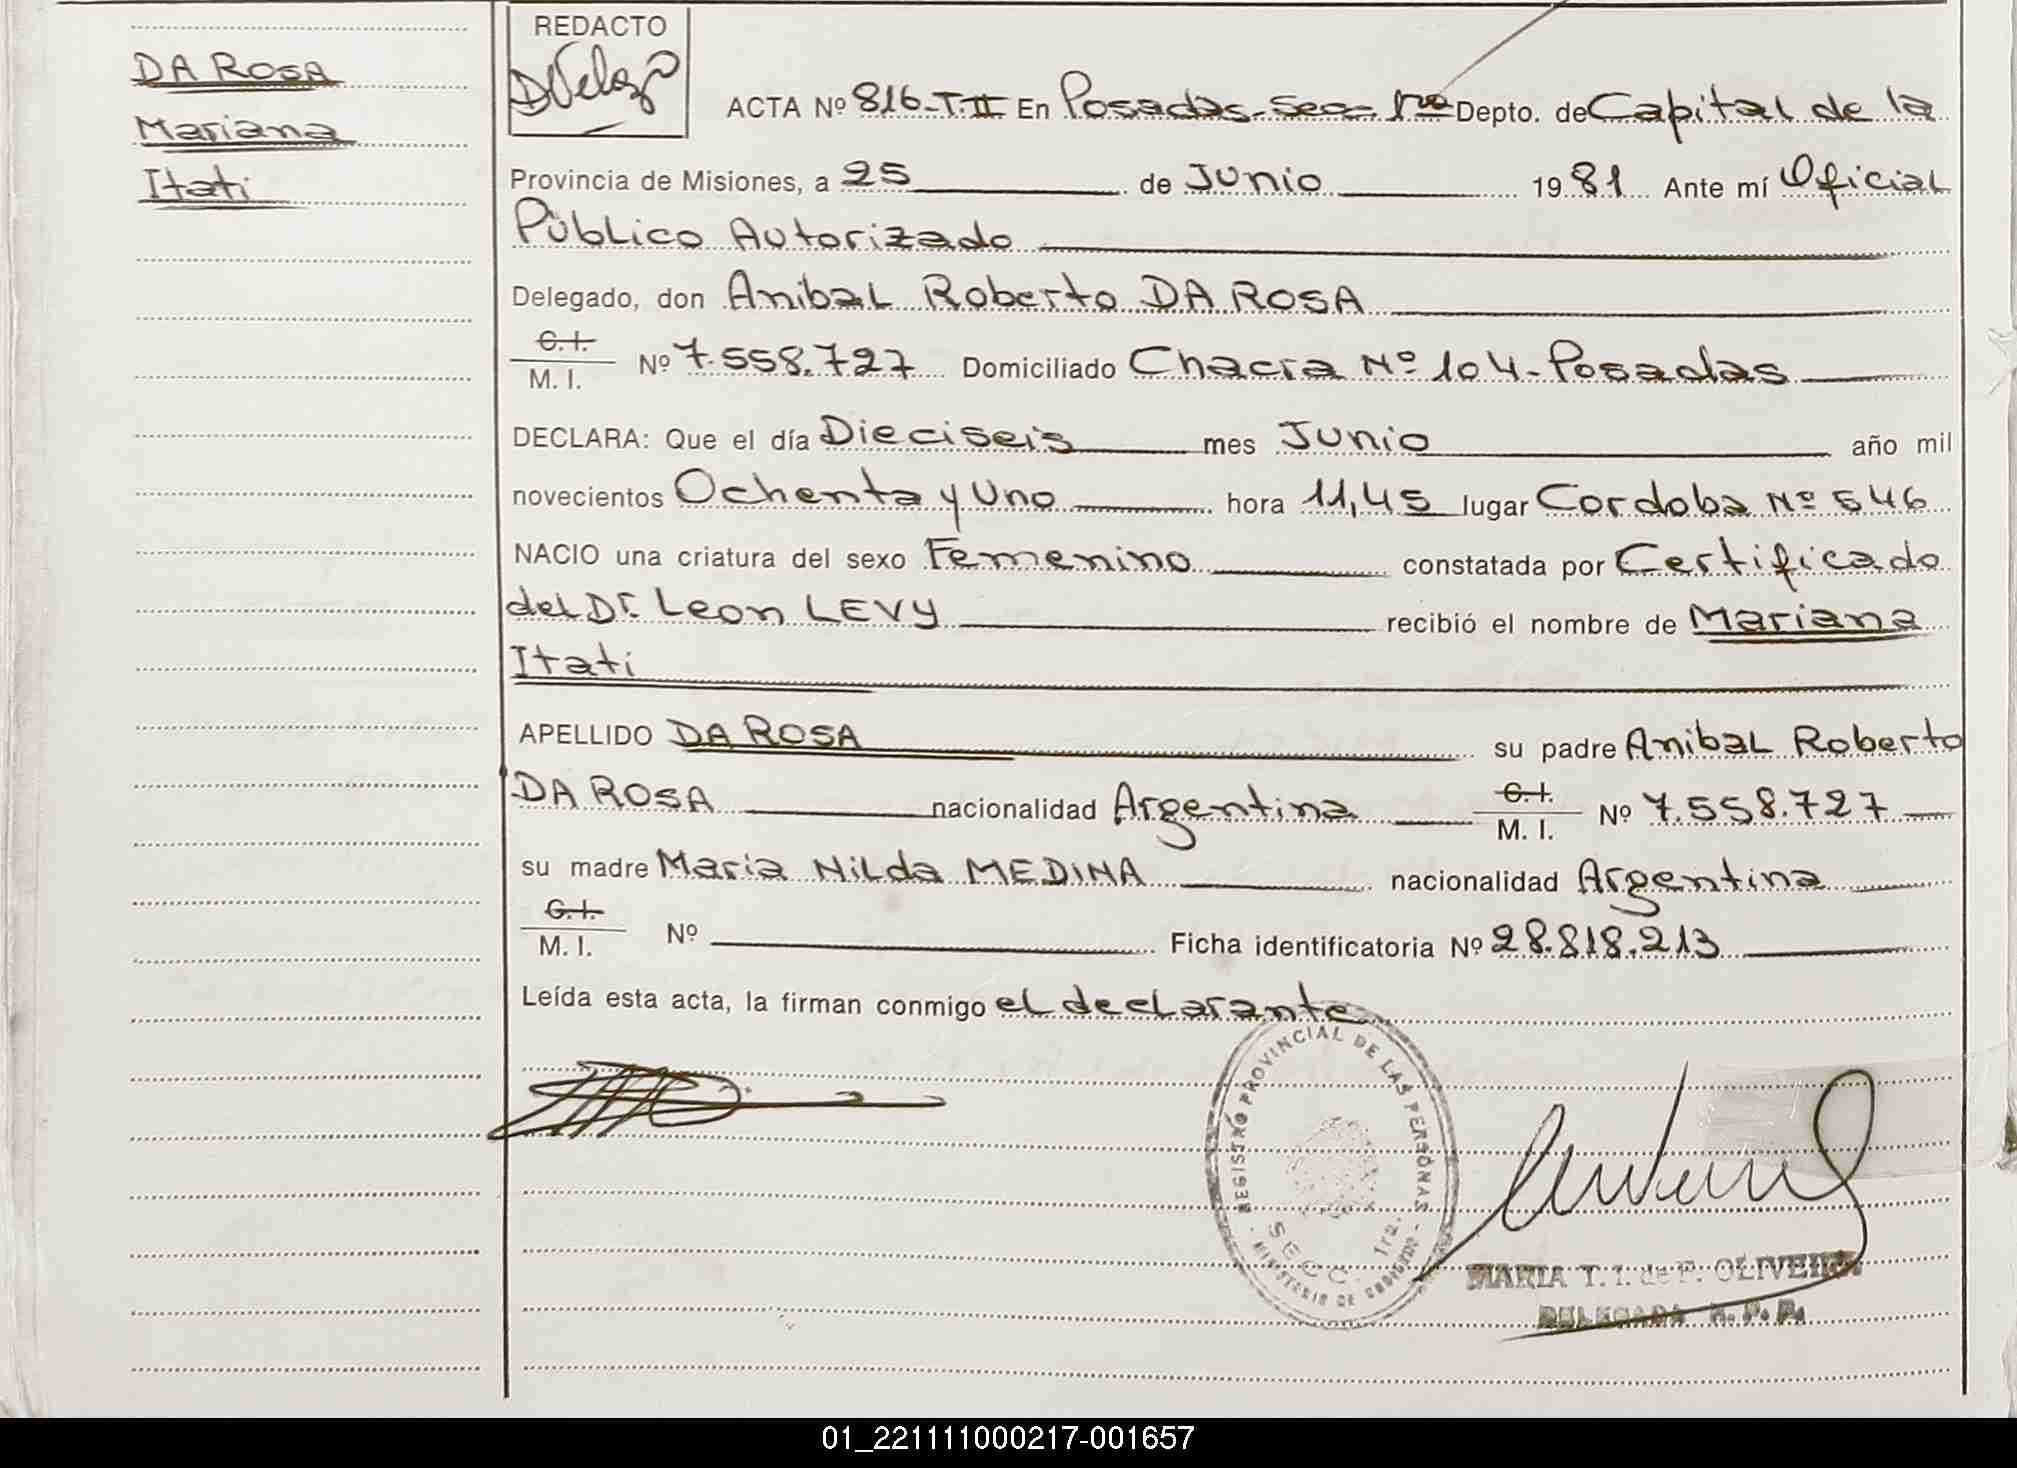 DA ROSA
Mariana
Itati
REDACTO
ACTA Nº 816-T.II En Posadas-Secc. 1ra Depto. de Capital de la
Provincia de Misiones, a 25 de Junio 1981 Ante mí Oficial
Público Autorizado
Delegado, don Anibal Roberto DA ROSA
C. I.
M. I. Nº 7.558.727 Domiciliado Chacra Nº 104-Posadas
DECLARA: Que el día Dieciseis mes Junio año mil
novecientos Ochenta y Uno hora 11,45 lugar Cordoba Nº 546
NACIO una criatura del sexo Femenino constatada por Certificado
del Dr. Leon LEVY recibió el nombre de Mariana
Itati
APELLIDO DA ROSA su padre Anibal Roberto
DA ROSA nacionalidad Argentina C. I. M. I. Nº 7.558.727
su madre Maria Nilda MEDINA nacionalidad Argentina
C. I.
M. I. Nº Ficha identificatoria Nº 28.818.213
Leída esta acta, la firman conmigo el declarante
REGISTRO PROVINCIAL DE LAS PERSONAS
SECC. 1ra.
MINISTERIO DE GOBIERNO
MARIA T. I. de F. OLIVEIRA
DELEGADA R. P. P.
01_221111000217-001657